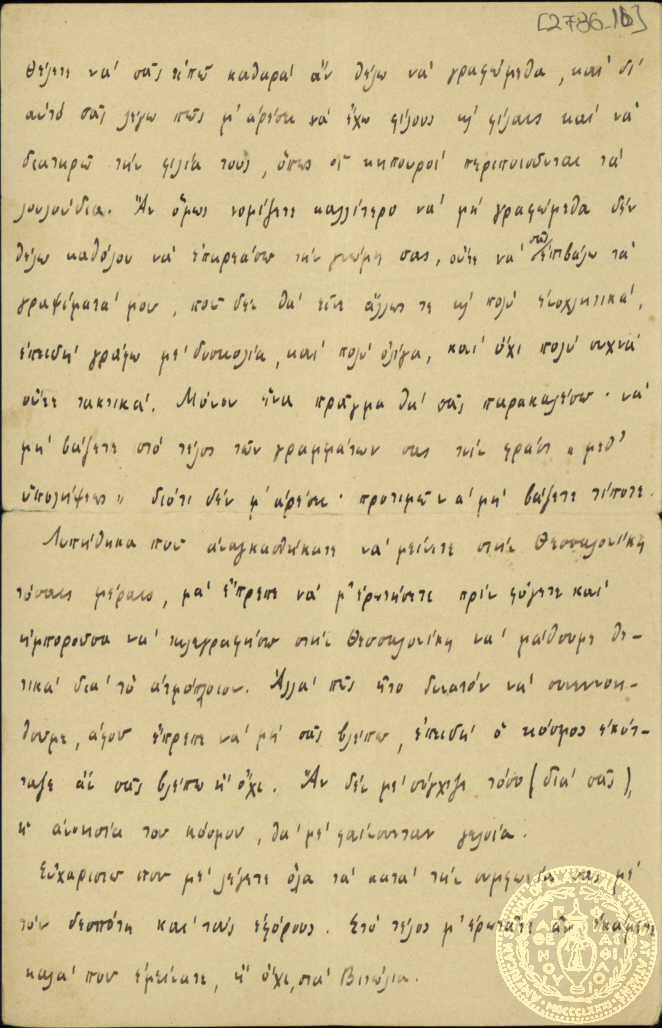 [2786-1b]
θέλετε νά σᾶς εἰπῶ καθαρά ἄν θέλω νά γραφώμεθα, καί δι'
αὐτό σᾶς λέγω πῶς μ' ἀρέσει νά ἔχω φίλους κ' φίλαις καί νά
διατηρῶ τήν φιλία τους, ὅπως οἱ κηπουροί περιποιοῦνται τά
λουλούδια. Ἄν ὅμως νομίζετε καλλίτερο νά μή γραφώμεθα δέν
θέλω καθόλου νά ἐπηρεάσω τήν γνώμη σας, οὔτε νά σᾶς ἐπιβάλω τά
γραψίματά μου, ποῦ δέν θά εἶνε ἄλλως τε κ' πολύ ἐνοχλητικά,
ἐπειδή γράφω μέ δυσκολία, καί πολύ ὀλίγα, καί ὄχι πολύ συχνά
οὔτε τακτικά. Μόνον ἕνα πρᾶγμα θά σᾶς παρακαλέσω· νά
μή βάζετε στό τέλος τῶν γραμμάτων σας τήν φράσι „μεθ'
ὑπολήψεως" διότι δέν μ' ἀρέσει· προτιμῶ νά μή βάζετε τίποτε.
Λυπήθηκα ποῦ ἀναγκασθήκατε νά μείνετε στήν Θεσσαλονίκη
τόσαις μέραις, μά ἔπρεπε νά μ' ἐρωτήσετε πρίν φύγετε καί
ἠμποροῦσα νά τηλεγραφήσω στήν Θεσσαλονίκη νά μάθουμε θε-
τικά διά τό ἀτμόπλοιον. Ἀλλά πῶς ἦτο δυνατόν νά συνεννοη-
θοῦμε, ἀφοῦ ἔπρεπε νά μή σᾶς βλέπω, ἐπειδή ὁ κόσμος ἐκύτ-
ταζε ἄν σᾶς βλέπω ἤ ὄχι. Ἄν δέν μέ σύγχιζε τόσο (διά σᾶς),
ἡ ἀνοησία τοῦ κόσμου, θά μέ φαίνουνταν γελοία.
Εὐχαριστῶ ποῦ μέ λέγετε ὅλα τά κατά τήν συμφωνία σας μέ
τόν δεσπότη καί τούς ἐφόρους. Στό τέλος μ' ἐρωτᾶτε ἄν ἐκάμετε
καλά ποῦ ἐμείνατε, ἤ ὄχι, στά Βιτώλια.